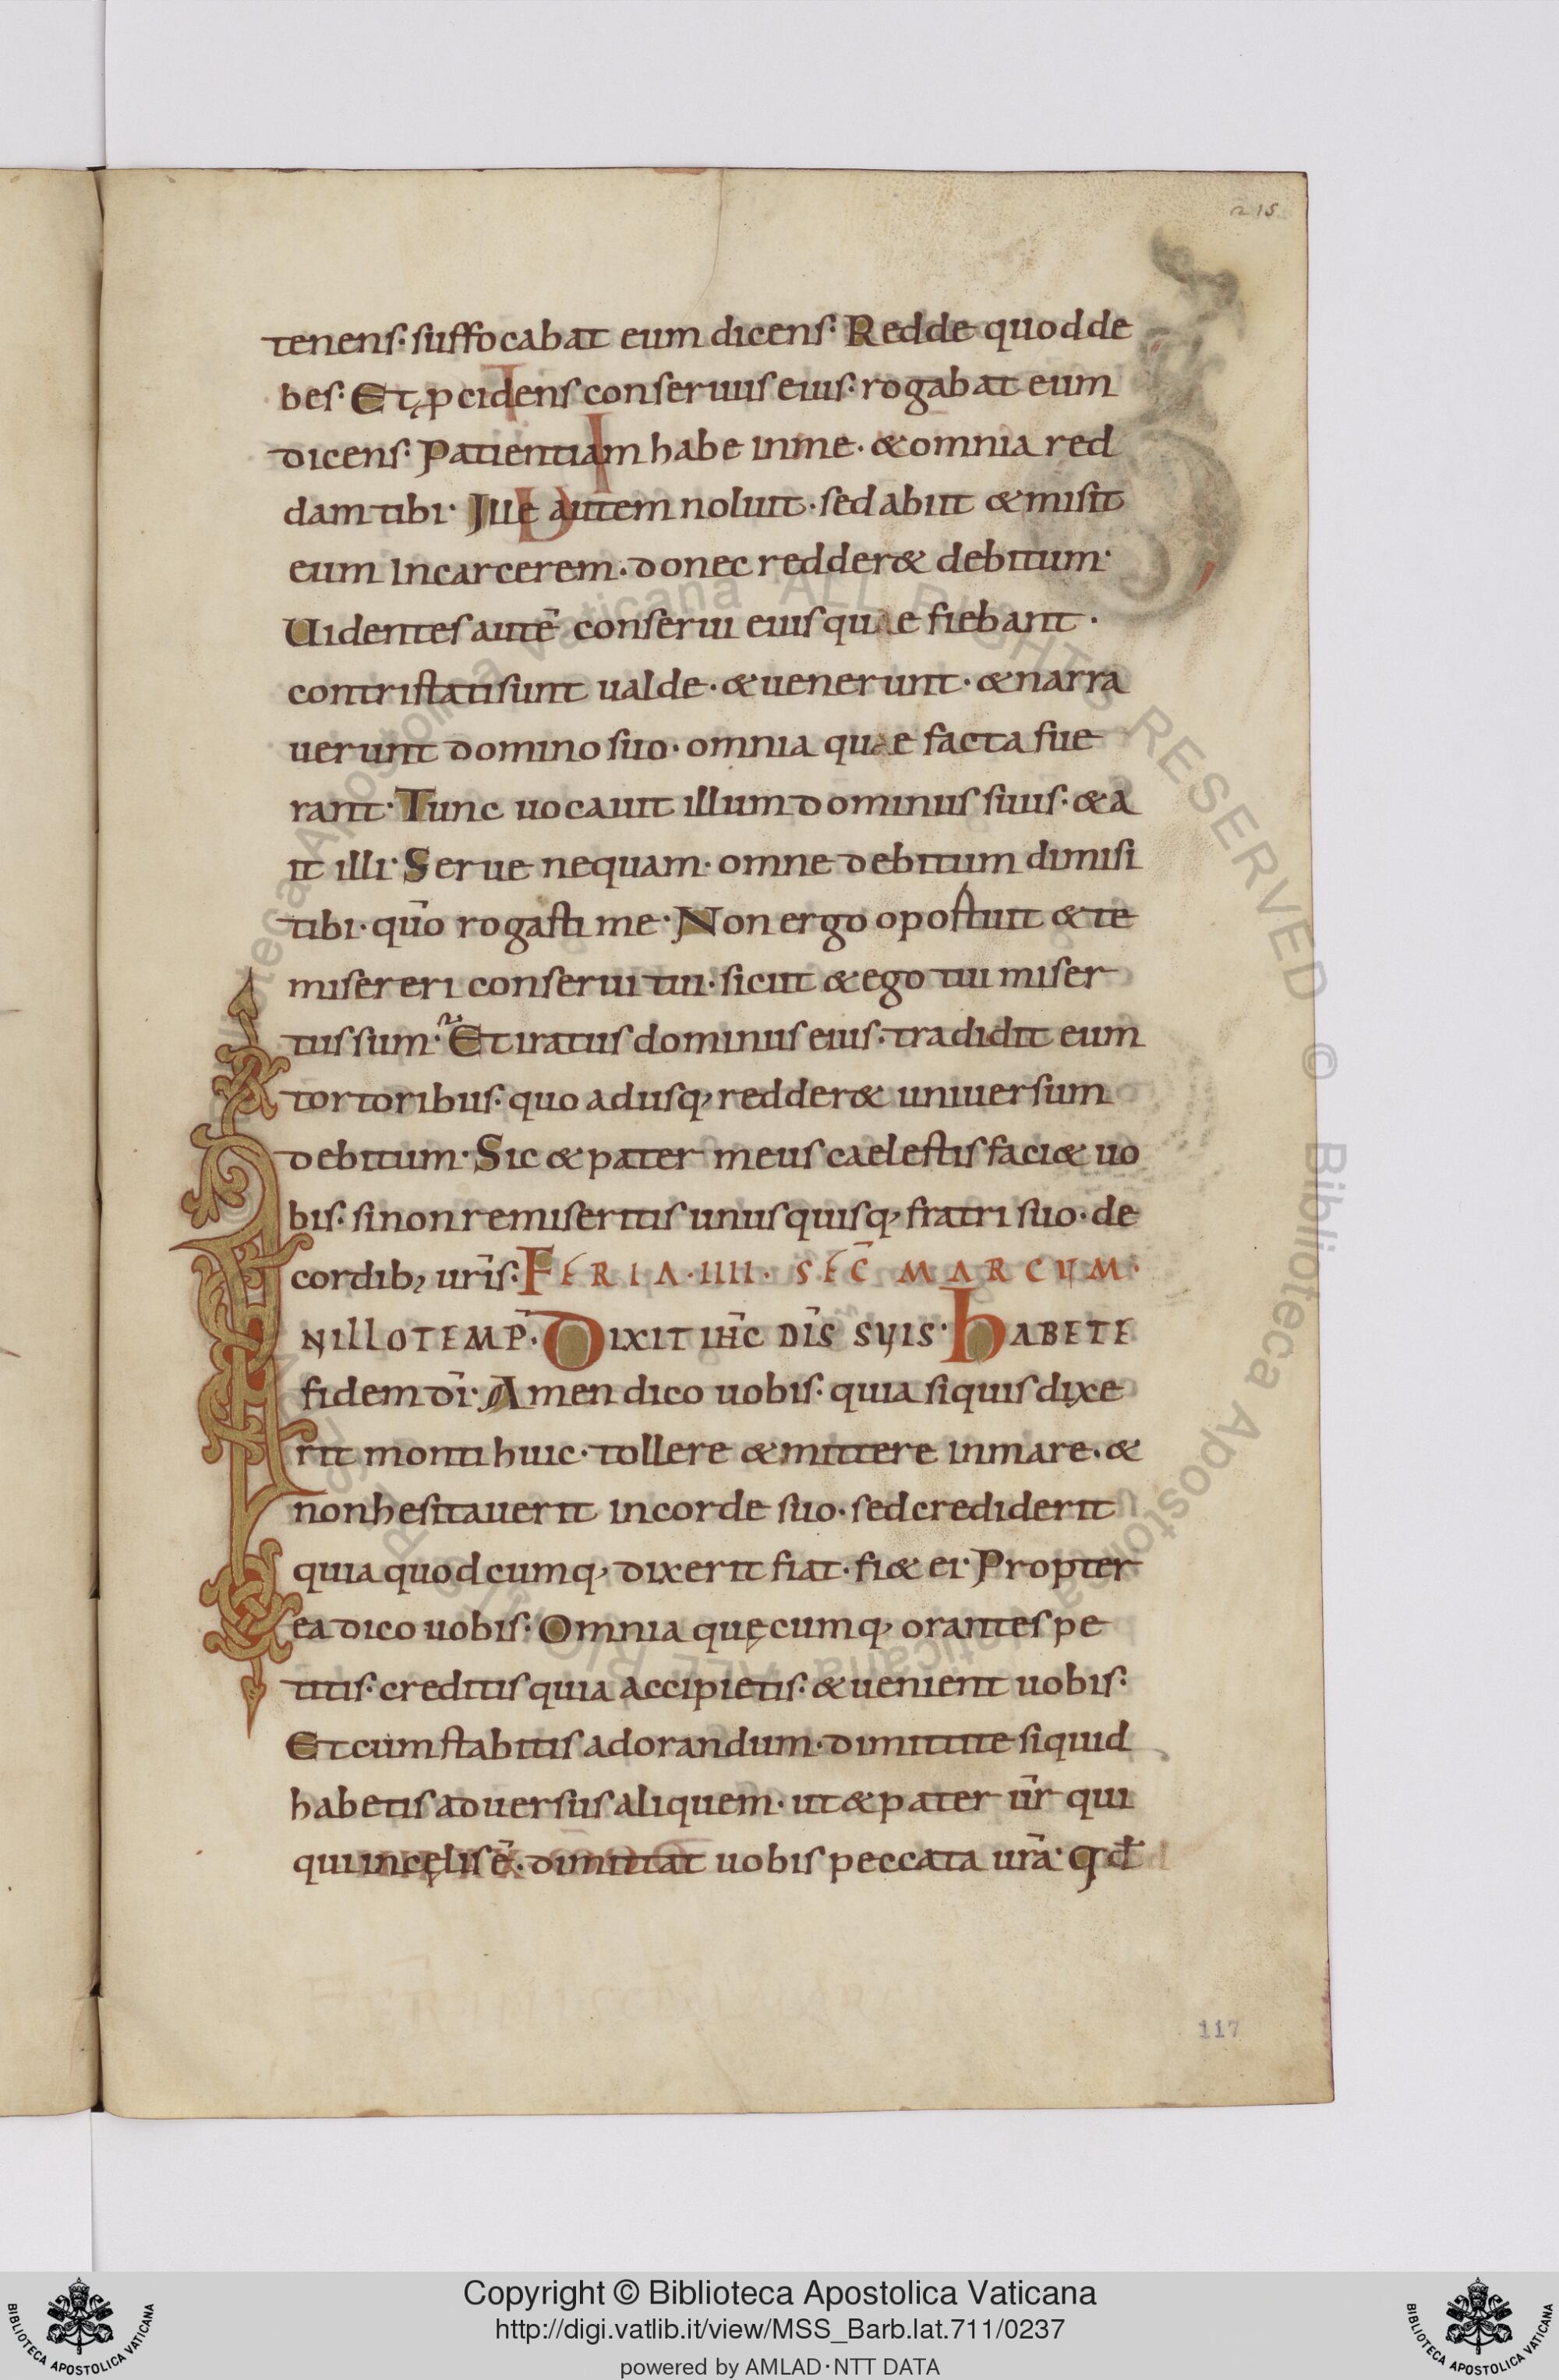 215
tenens. suffocabat eum dicens. Redde quod de
bes. Et p̨cidens conseruus eius. rogabat eum
dicens. Patientiam habe inme. & omnia red
dam tibi. Ille autem noluit. sed abiit & misit
eum incarcerem. donec redder& debitum.
Uidentes autē conserui eius quae fiebant.
contristati sunt ualde. & uenerunt. & narra
uerunt domino suo. omnia quae facta fue
rant. Tunc uocauit illum dominus suus. & a
it illi. Serue nequam. omne debitum dimisi
tibi. qūo rogasti me. Non ergo oportuit & te
misereri conserui tui. sicut & ego tui miser
tus sum. Et iratus dominus eius. tradidit eum
tortoribus. quo adusq, redder& uniuersum
debitum. Sic & pater meus caelestis faci& uo
bis. si non remiseritis unusquisq, fratri suo. de
cordib, ur̄is. FERIA. IIII. SEC̄ MARCUM.
IN ILLO TEMP̄. DIXIT IH̄C DĪS SUIS. HABETE
fidem dī. Amen dico uobis. quia siquis dixe
rit monti huic. tollere & mittere inmare. &
non hesitauerit incorde suo. sed crediderit
quia quodcumq, dixerit fiat. fi& ei. Propter
ea dico uobis. Omnia quęcumq, orantes pe
titis. creditis quia accipietis. & uenient uobis.
Et cum stabitis adorandum. dimittite siquid
habetis aduersus aliquem. ut & pater ur̄ qui
qui incęlis ē. dimittat uobis peccata ur̄a. qđ
117
Copyright © Biblioteca Apostolica Vaticana
http://digi.vatlib.it/view/MSS_Barb.lat.711/0237
powered by AMLAD·NTT DATA
BIBLIOTECA APOSTOLICA VATICANA
BIBLIOTECA APOSTOLICA VATICANA